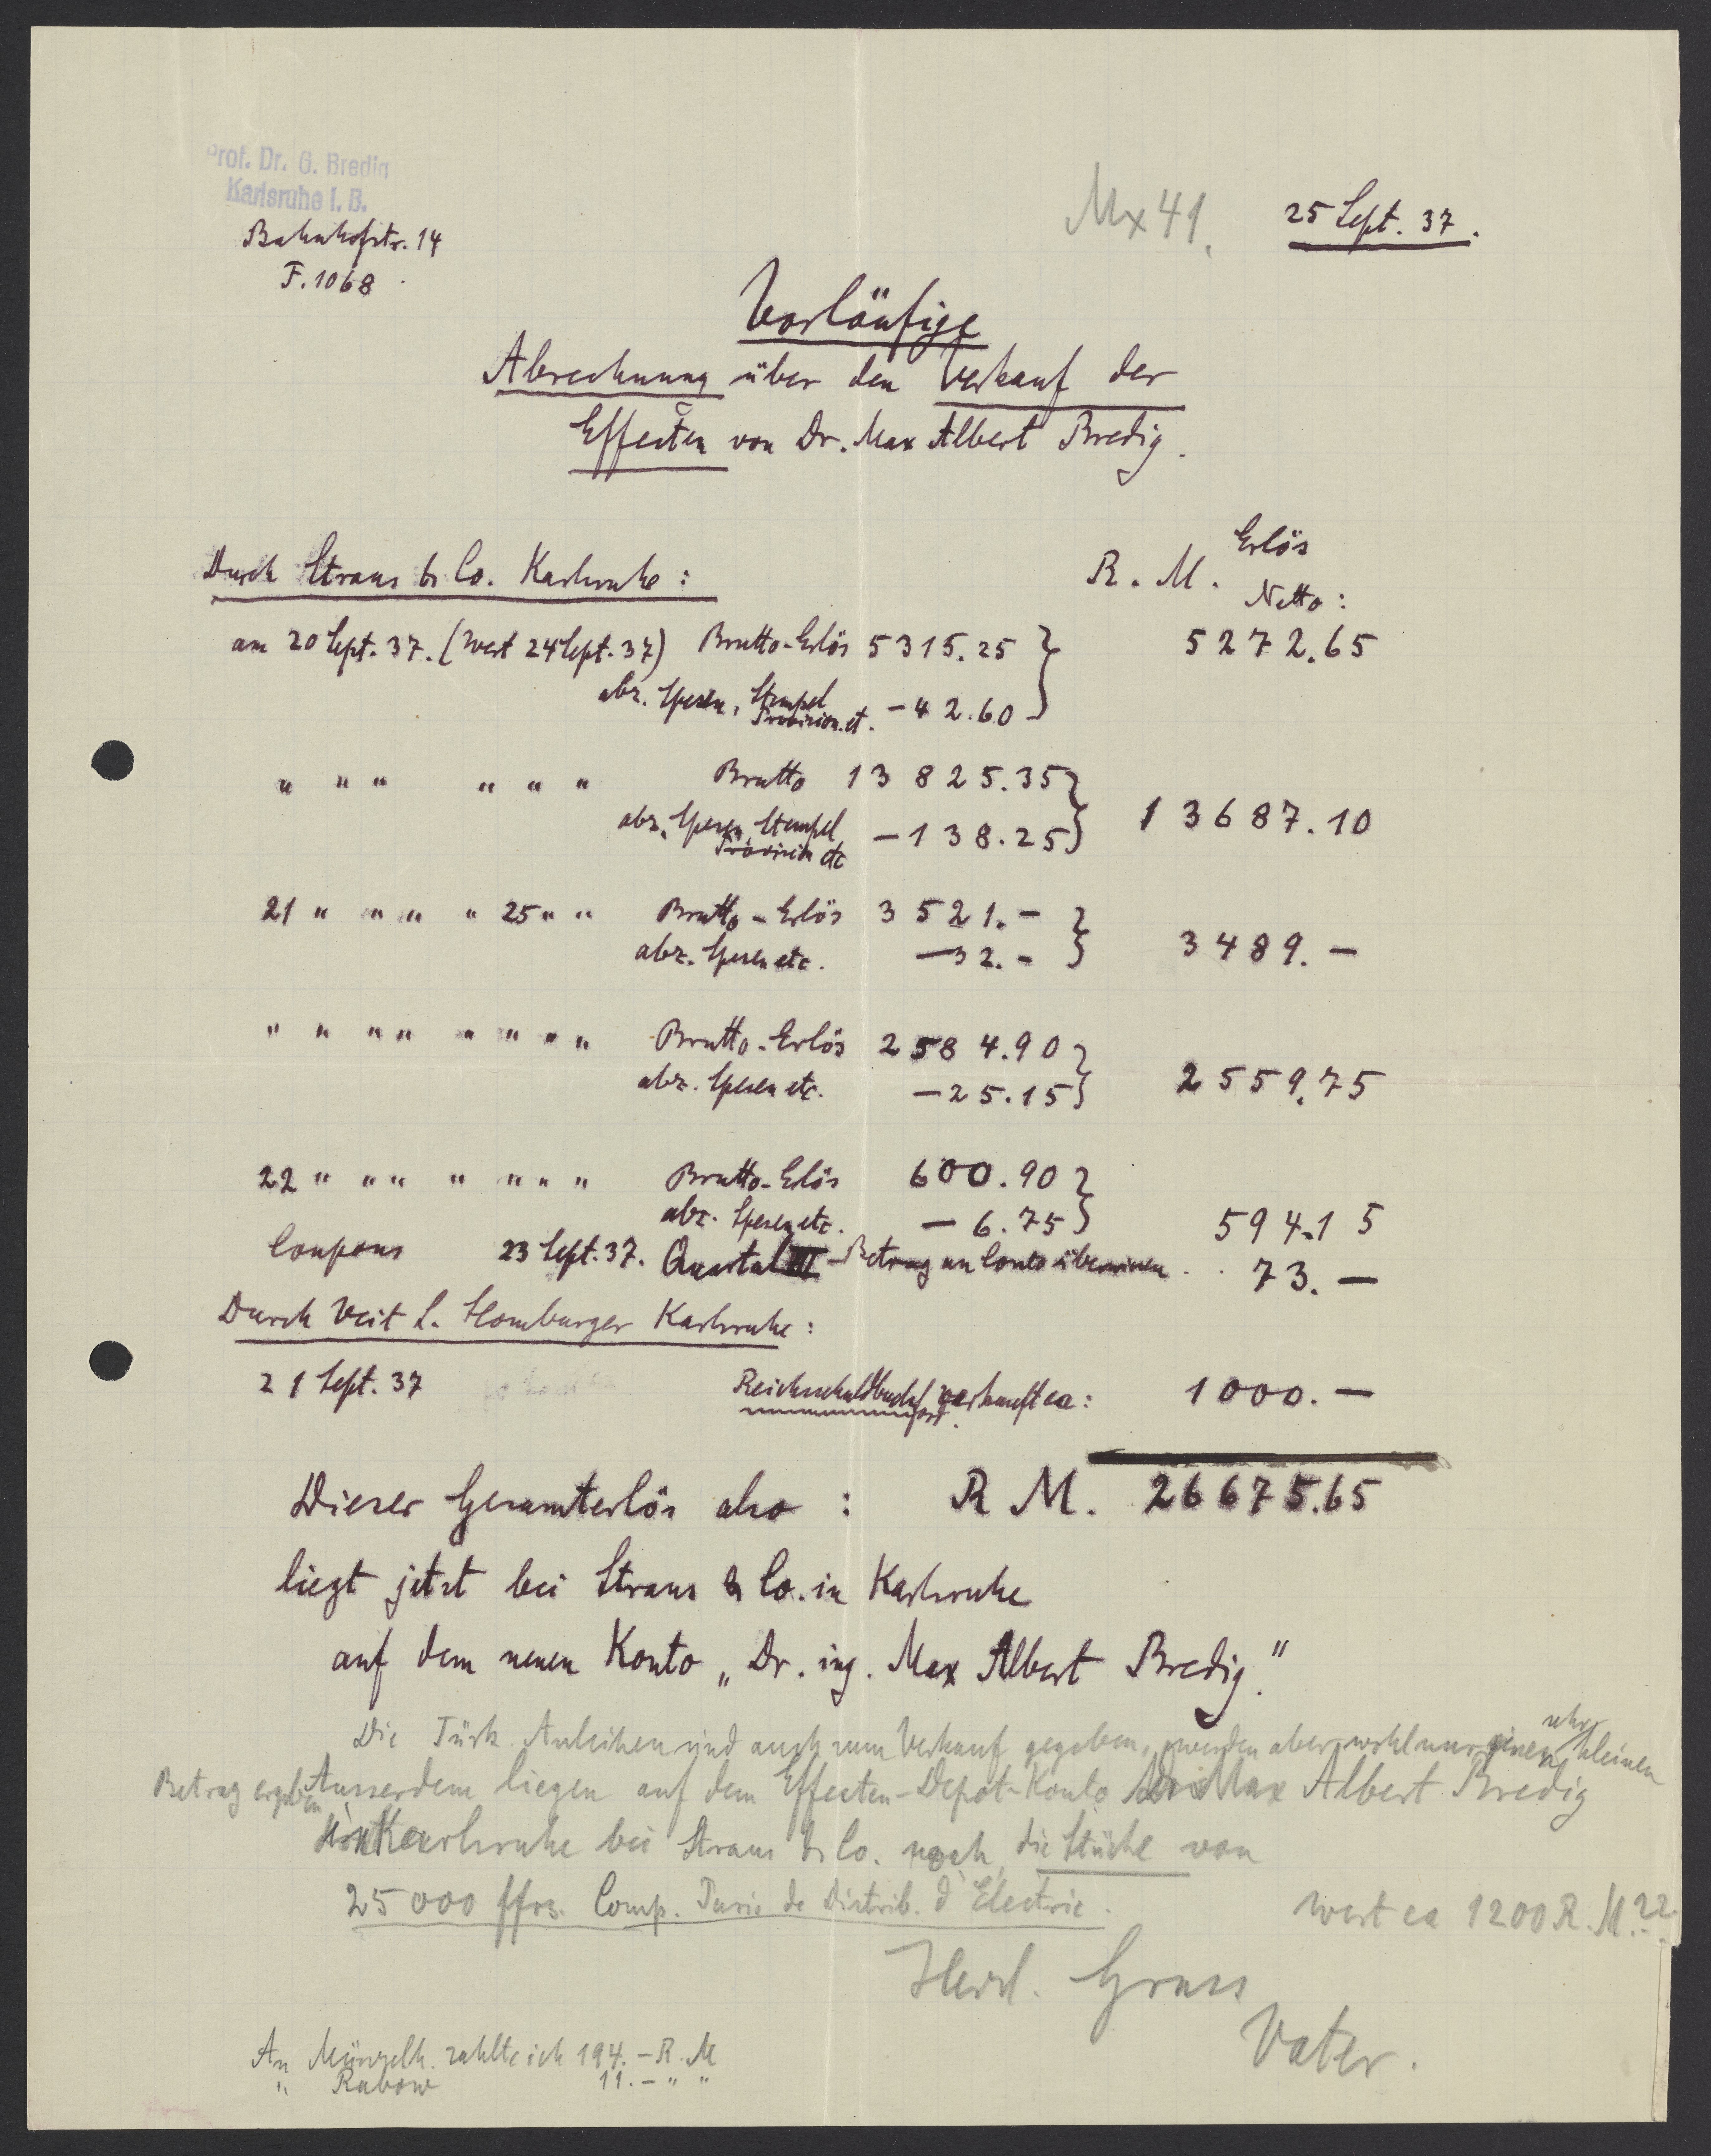 Prof. Dr. G. Bredig
Karlsruhe i. B.
Bahnhofstr. 14
F. 1068
Mx 41.
25 Sept. 37.
Vorläufige
Abrechnung über den Verkauf der
Effecten von Dr. Max Albert Bredig.
Durch Straus & Co. Karlsruhe:
R. M. Erlös
Netto:
am 20 Sept. 37. (Wert 24 Sept. 37) Brutto-Erlös 5315.25 } 5272.65
abz. Spesen, Stempel
Provision. et. -42.60
" " " " " " Brutto 13825.35 } 13687.10
abz. Spesen, Stempel
Provision etc -138.25
21 " " " " 25 " " Brutto-Erlös 3521.- } 3489.-
abz. Spesen etc. -32.-
" " " " " " " " Brutto-Erlös 2584.90 } 2559.75
abz. Spesen etc. -25.15
22 " " " " " " " Brutto-Erlös 600.90 }
abz. Spesen etc. -6.75 594.15
Coupons 23 Sept. 37. Quartal III-Betrag an Conto überwiesen . . 73.-
Durch Veit L. Homburger Karlsruhe:
21 Sept. 37 Reichsschuldbuchf verkauft ca: 1000.-
Dieser Gesamterlös also: R M. 26675.65
liegt jetzt bei Straus & Co. in Karlsruhe
auf dem neuen Konto „Dr. ing. Max Albert Bredig."
Die Türk. Anleihen sind auch zum Verkauf gegeben, werden aber wohl nur einen sehr kleinen
Betrag ergeben Ausserdem liegen auf dem Effecten-Depot-Konto Dr Max Albert Bredig
in Karlsruhe bei Straus & Co. noch die Stücke von
25000 ffrs. Comp. Paris de Distrib. d'Electric.
Wert ca 1200 R. M??
Herzl. Gruss
Vater.
An Münzelh. zahlte ich 194.- R. M
" Rabow 11.- " "